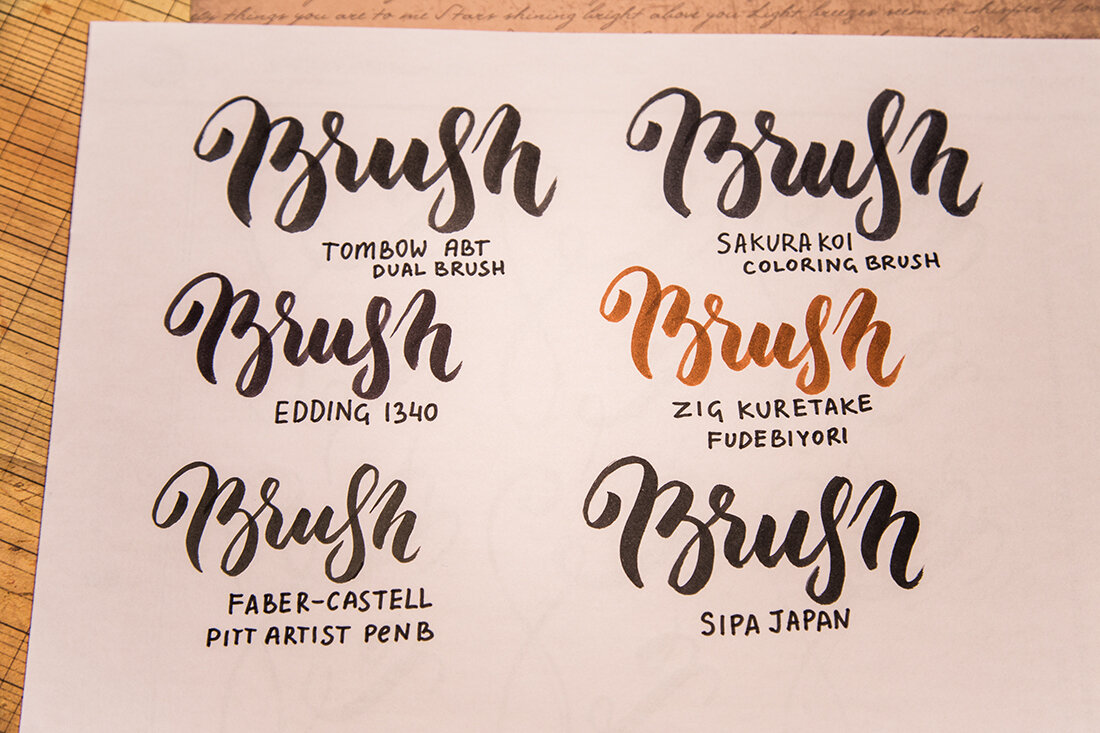 ny things you are to me Stars shining bright above you Light breezes seem to whisper I
Brush
TOMBOW ABT
DUAL BRUSH
Brush
SAKURA KOI
COLORING BRUSH
Brush
EDDING 1340
Brush
ZIG KURETAKE
FUDEBIYORI
Brush
FABER-CASTELL
PITT ARTIST PEN B
Brush
SIPA JAPAN